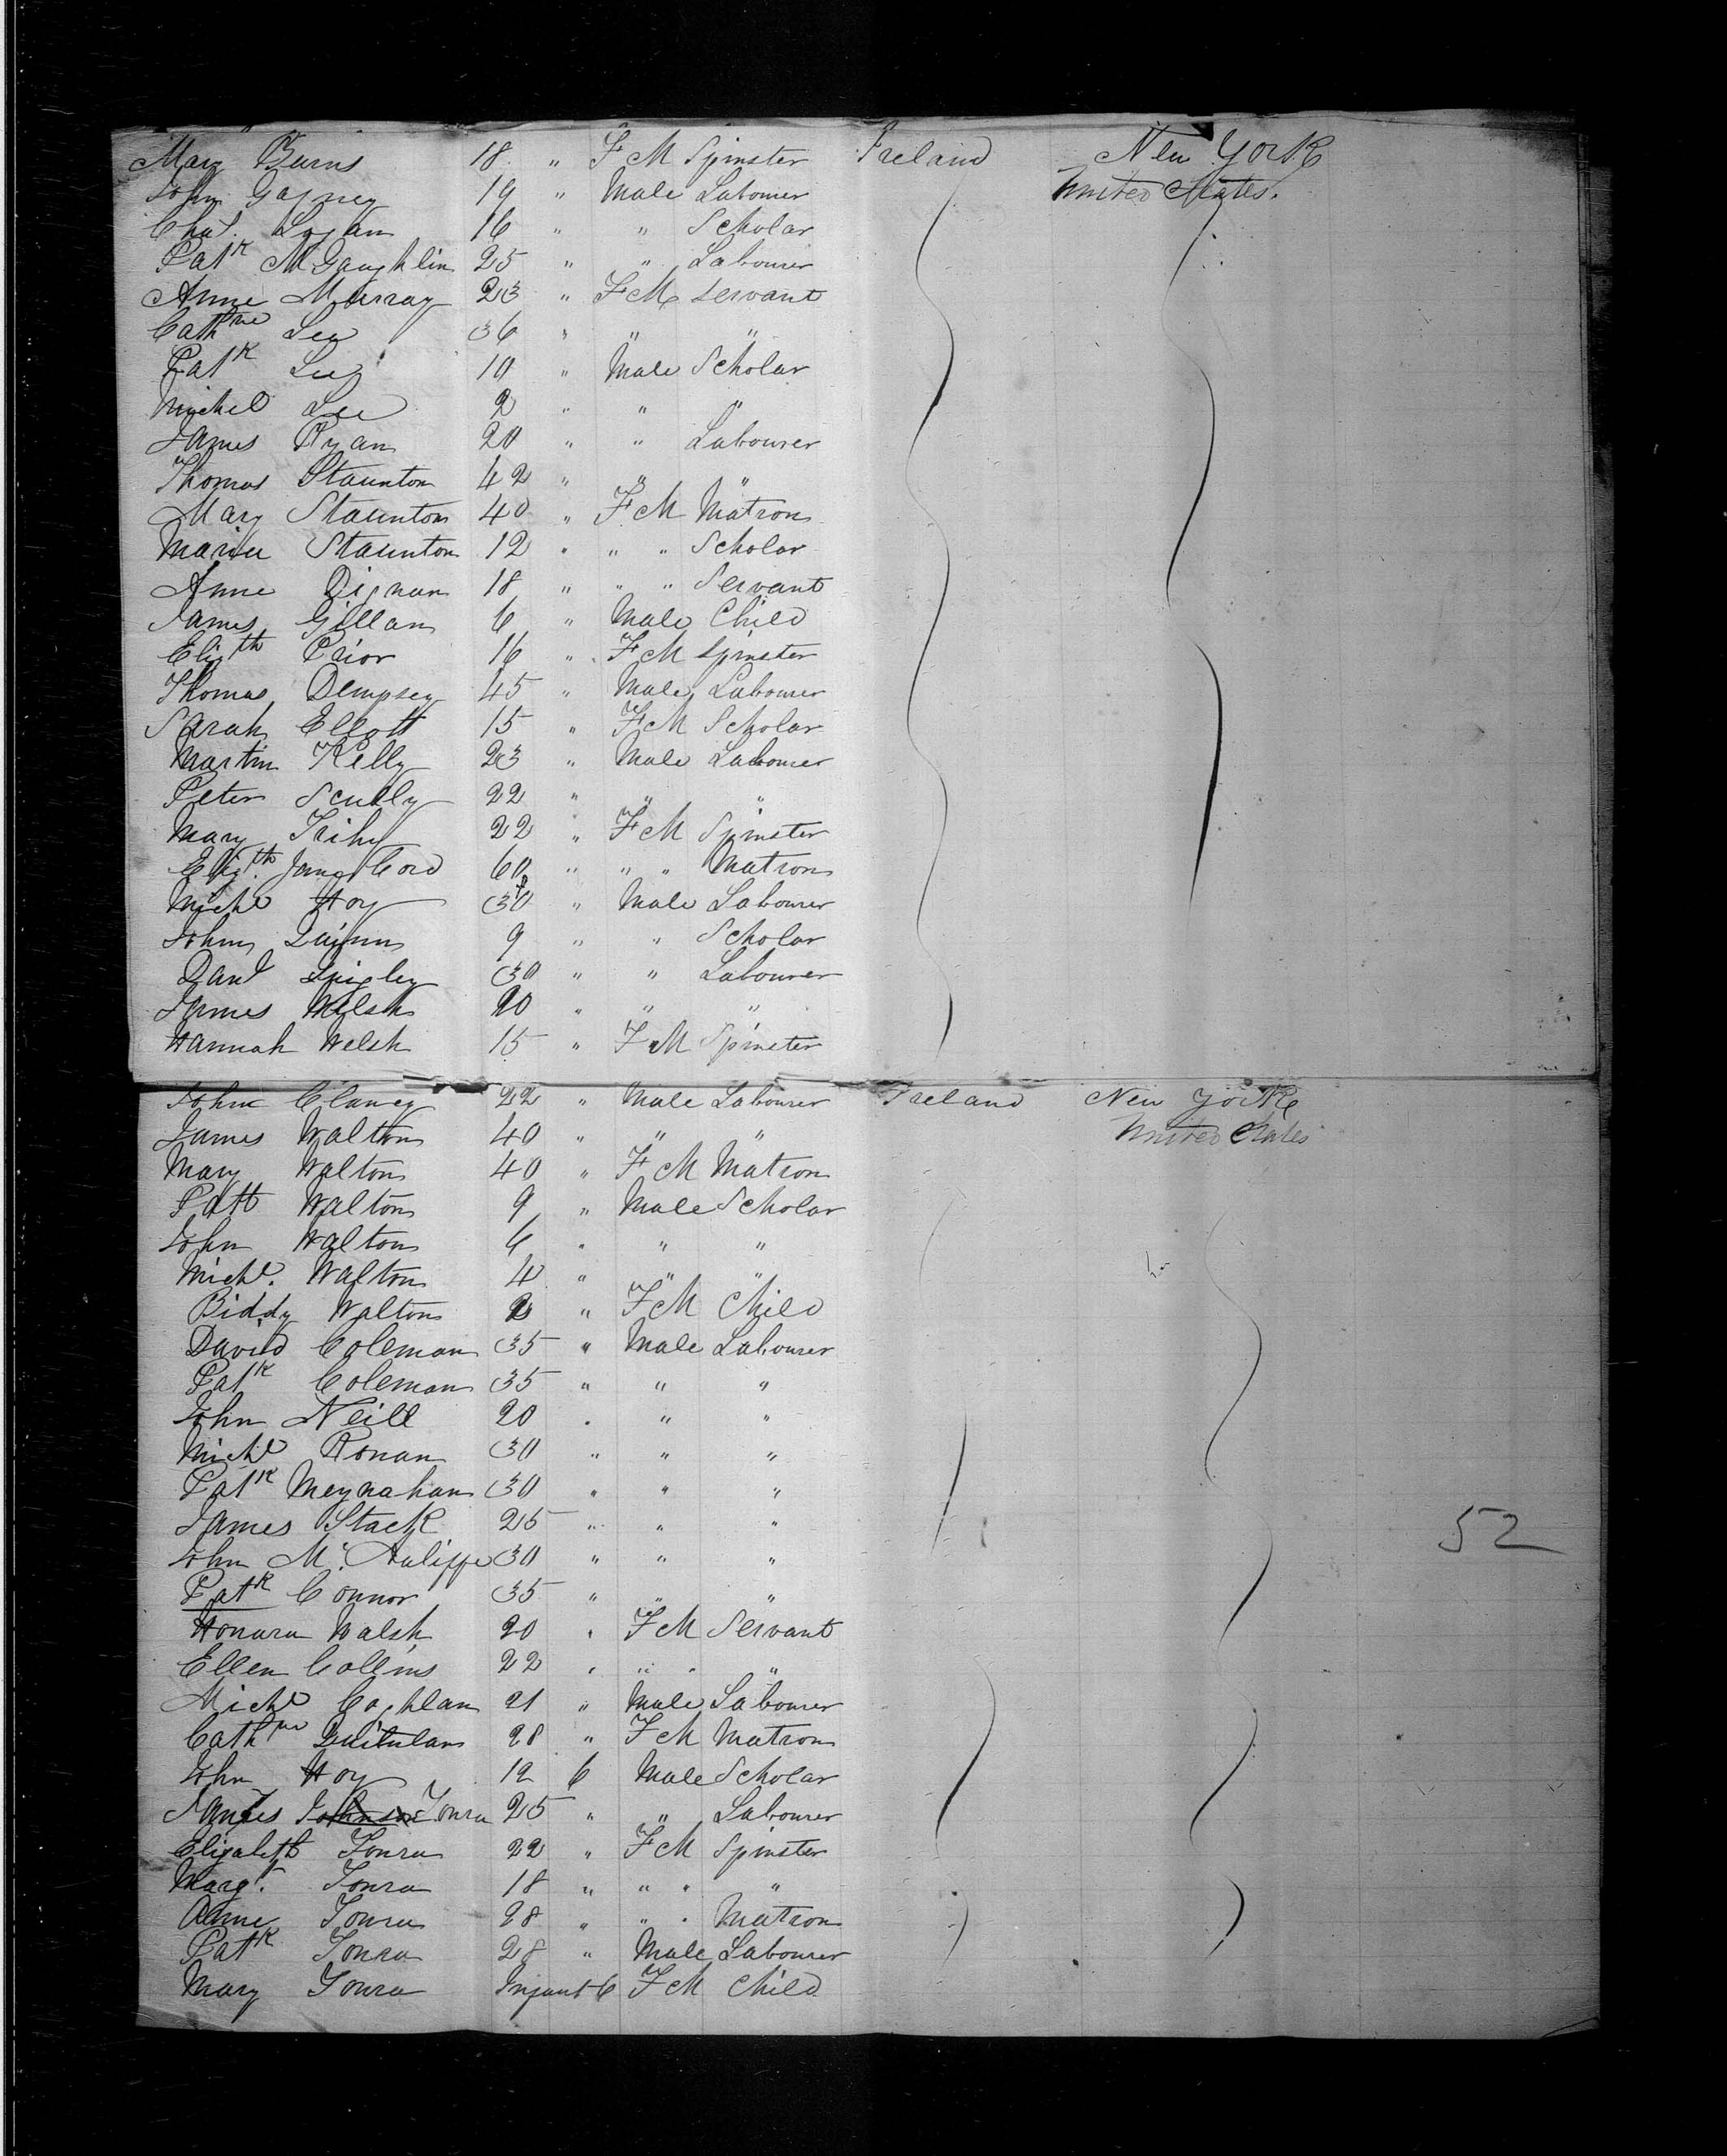 Mary Burns 18 " F M Spinster Ireland New York
John Gafney 19 " Male Labourer United States.
Chas. Logan 16 " " Scholar
Patk McGaughlin 25 " " Labourer
Anne Murray 23 " F M Servant
Cathne Lee 36 " " "
Patk Lee 10 " Male Scholar
Michel Lee 2 " " "
James Ryan 20 " " Labourer
Thomas Staunton 42 " " "
Mary Staunton 40 " F M Matron
Maria Staunton 12 " " " Scholar
Anne Dignan 18 " " " Servant
James Gillan 6 " Male Child
Elizth Prior 16 " F M Spinster
Thomas Dempsey 45 " Male Labourer
Sarah Ellott 15 " F M Scholar
Martin Kelly 23 " Male Labourer
Peter Scully 22 " " "
Mary Trihy 22 " F M Spinster
Elizth. Jane Cord 60 " " " Matron
Michl Hoy 30 " Male Labourer
John Quinn 9 " " Scholar
Danl 30 " " Labourer
James Welsh 20 " " "
Hannah Welsh 15 " F M Spinster
John Clancy 22 " Male Labourer Ireland New York
James Walton 40 " " " United States
Mary Walton 40 " F M Matron
Patt Walton 9 " Male Scholar
John Walton 6 " " "
Michl. Walton 4 " " "
Biddy Walton 2 " F M Child
David Coleman 35 " Male Labourer
Patk Coleman 35 " " "
John Neill 20 " " "
Michl Ronan 30 " " "
Patk Meynahan 30 " " "
James Stack 25 " " "
52
John Mc. Auliffe 30 " " "
Patk Connor 35 " " "
Honora Walsh 20 " F M Servant
Ellen Collins 22 " " " "
Michl Coghlan 21 " Male Labourer
Cathne Quinlan 28 " F M Matron
John Hoy 12 6 Male Scholar
James Johnson Tonra 25 " " Labourer
Elizabeth Tonra 22 " F M Spinster
Margt. Tonra 18 " " " "
Anne Tonra 28 " " " Matron
Patk Tonra 28 " Male Labourer
Mary Tonra Infant 6 F M Child